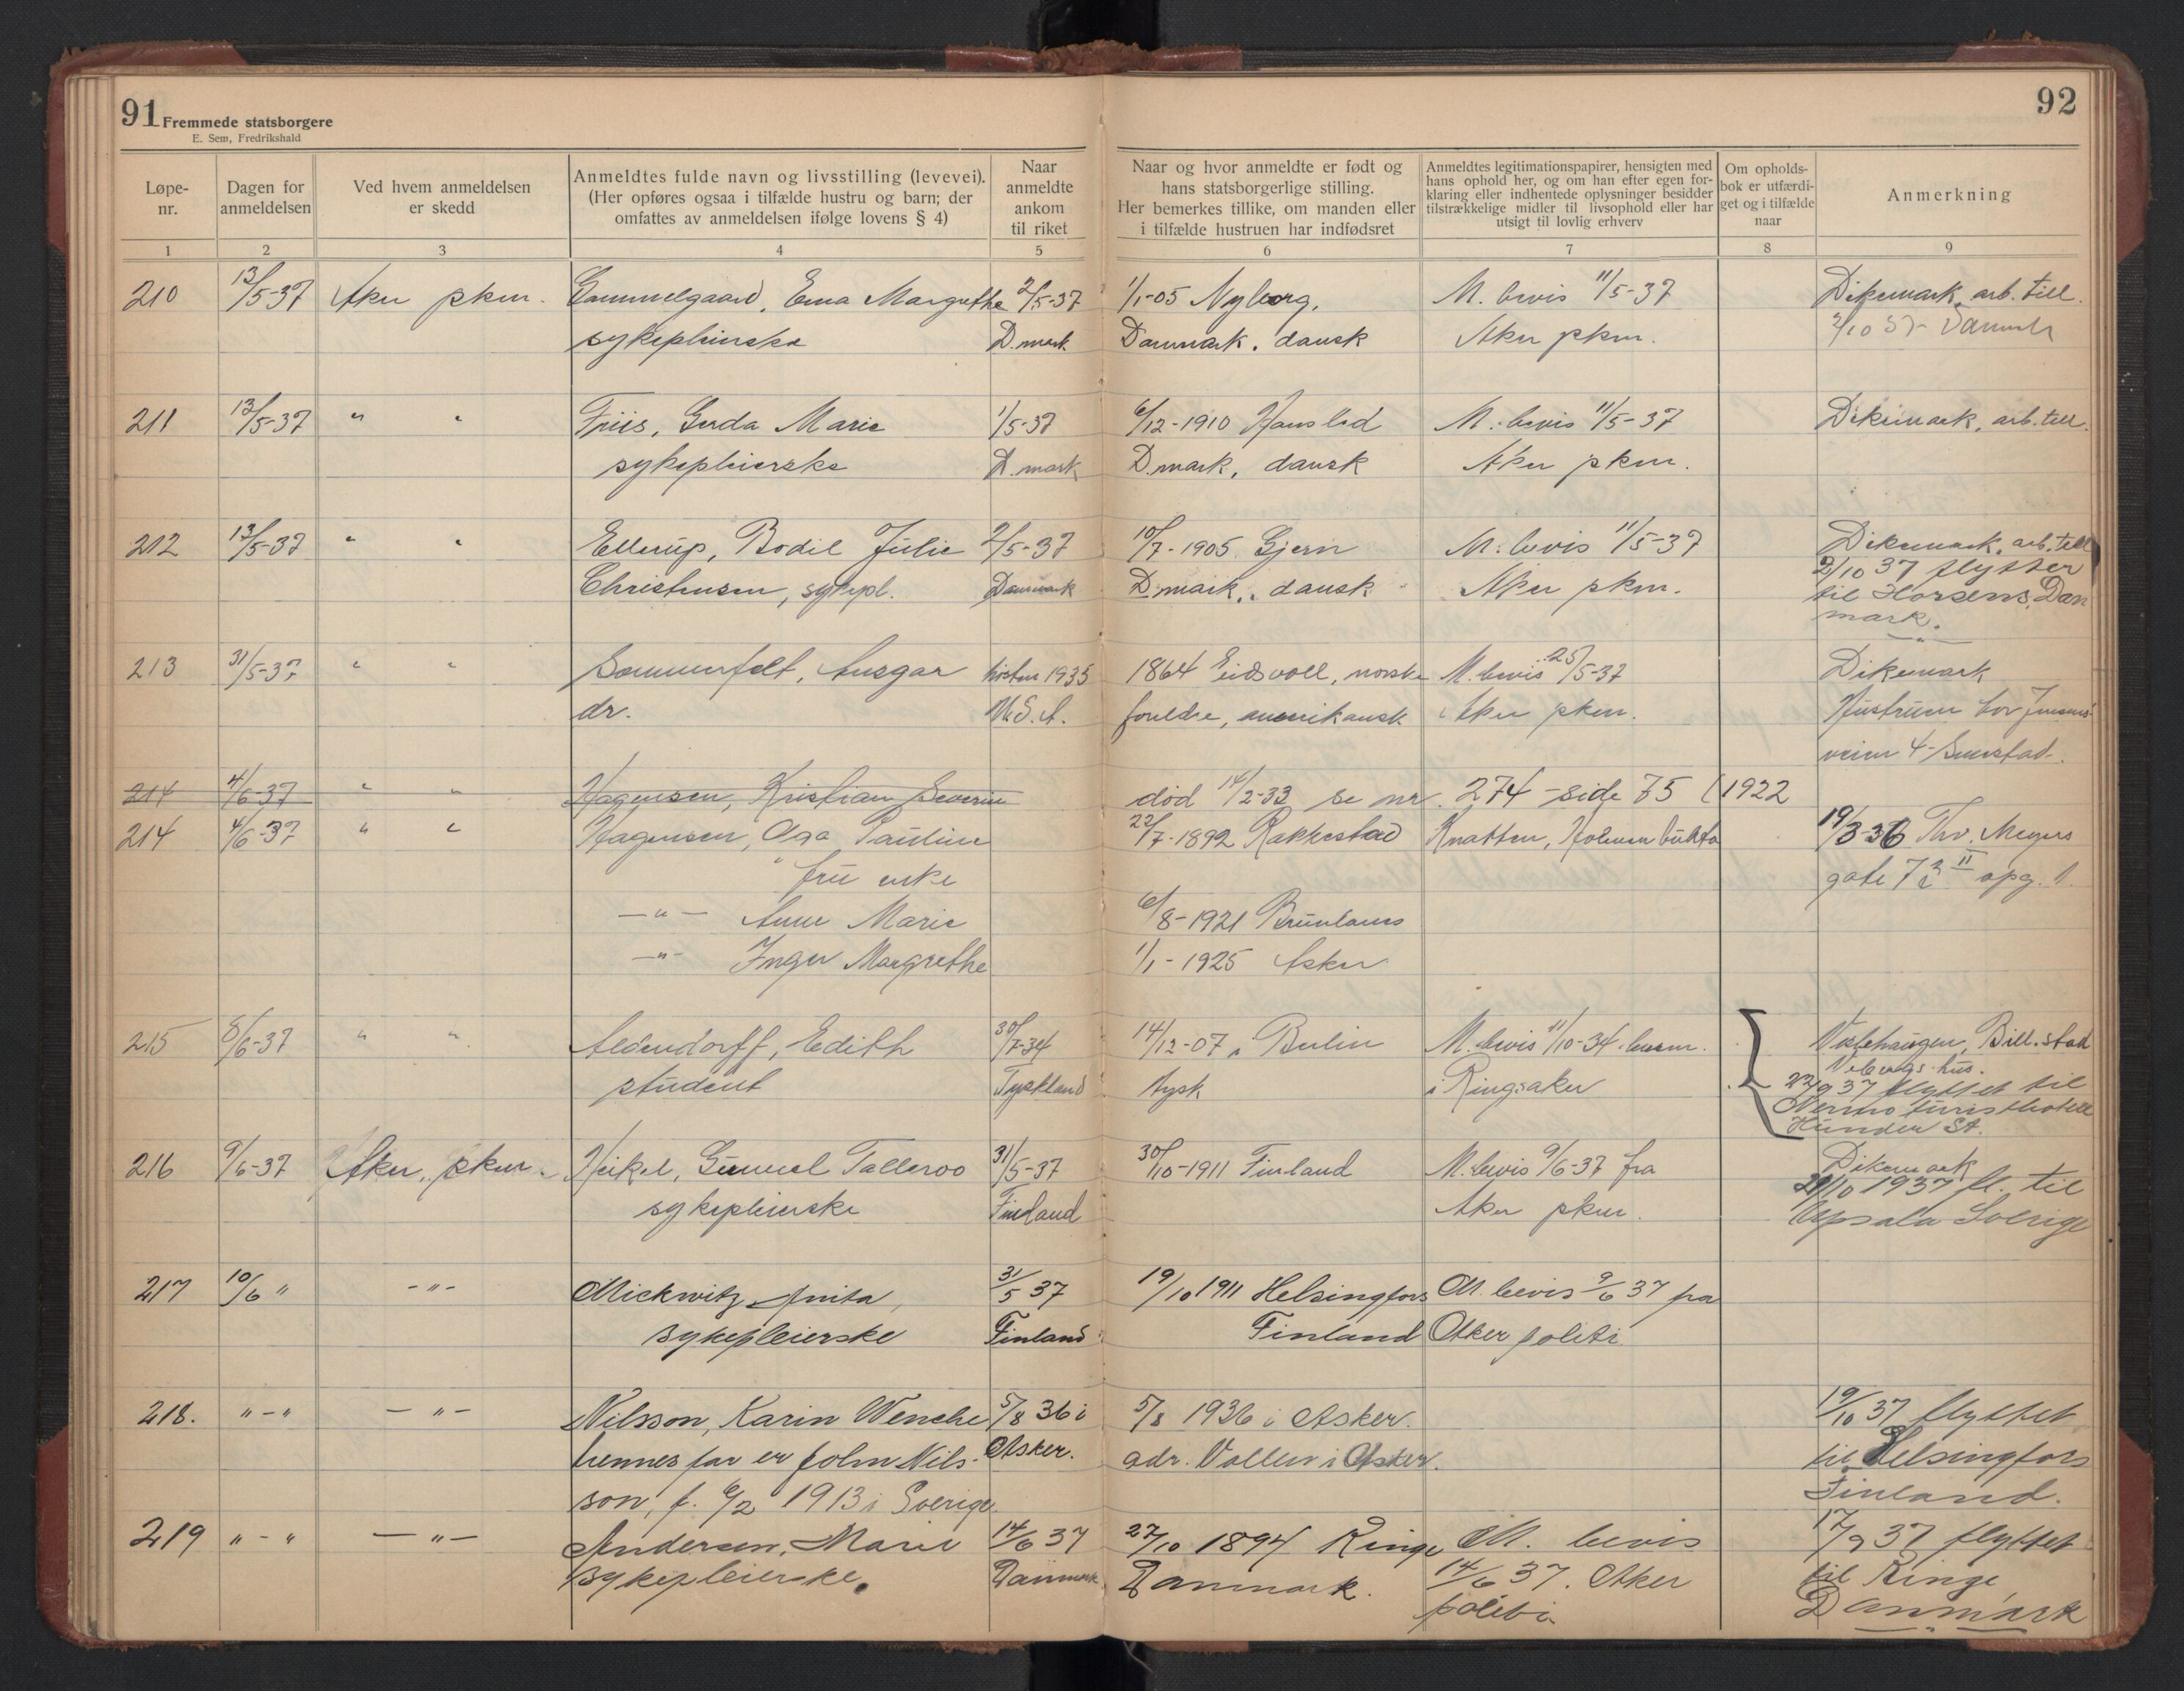 91 Fremmede statsborgere
E. Sem, Fredrikshald
92
Løpe-
nr.
Dagen for
anmeldelsen
Ved hvem anmeldelsen
er skedd
Anmeldtes fulde navn og livsstilling (levevei).
(Her opføres ogsaa i tilfælde hustru og barn; der
omfattes av anmeldelsen ifølge lovens § 4)
Naar
anmeldte
ankom
til riket
Naar og hvor anmeldte er født og
hans statsborgerlige stilling.
Her bemerkes tillike, om manden eller
i tilfælde hustruen har indfødsret
Anmeldtes legitimationspapirer, hensigten med
hans ophold her, og om han efter egen for-
klaring eller indhentede oplysninger besidder
tilstrækkelige midler til livsophold eller har
utsigt til lovlig erhverv
Om opholds-
bok er utfærdi-
get og i tilfælde
naar
Anmerkning
1 2 3 4 5 6 7 8 9
210 13/5-37 Aker pkm. Gammelgaard, Erna Margrethe 2/5-37 1/1-05 Nyborg, M. bevis 11/5-37 Dikemark, arb. till.
sykepleierske D.mark Danmark. dansk Aker pkm. 2/10 37 Danmark
211 13/5-37 " " Friis, Gerda Marie 1/5-37 6/12-1910 Hansted M. bevis 11/5-37 Dikemark, arb. till.
sykepleierske D.mark D.mark, dansk Aker pkm.
212 13/5-37 " " Ellerup, Bodil Julie 2/5-37 10/7-1905 Gjern M. bevis 11/5-37 Dikemark, arb. till
Christensen, sykepl. Danmark D.mark, dansk Aker pkm. 2/10 37 flytter
til Horsens, Dan
mark.
213 31/5-37 " " Sommerfelt, Ansgar høsten 1935 1864 Eidsvoll, norske M. bevis 25/5-37 Dikemark
dr. U.S.A. foreldre, amerikansk Aker pkm. Hustruen bor Jensens-
veien 4 - Smestad.
214 4/6-37 " " Hagensen, Kristian Severin død 14/2-33 se nr. 274 - side 75 (1922
214 4/6-37 " " Hagensen, Olga Pauline 22/7-1892 Rakkestad Knatten, Holmenbukta 19/3-36 Thv. Meyers
" fru enke gate 72 II opg. 1.
— " — Anne Marie 6/8-1921 Brunlanes
— " — Inger Margrethe 1/1-1925 Asker
215 8/6-37 " " Aldendorff, Edith 30/7-34 14/12-07, Berlin M. bevis 11/10-34 Billstad
student Tyskland tysk i Ringsaker
22/9 37 flyttet til
Nermo turisthotell
Hunder St.
216 9/6-37 Aker pkm. Heikel, Gunnel Talleroo 31/5-37 30/10-1911 Finland M. bevis 9/6-37 fra Dikemark
sykepleierske Finland Aker pkm. 21/10 1937 fl. til
Upsala Sverige
217 10/6 " - " - Mickwitz, Anita, 31/5 37 19/10 1911 Helsingfors M. bevis 9/6 37 fra
sykepleierske Finland Finland Aker politi
218. " - " — " — Nilsson, Karin Wenche 5/8 36 i 5/8 1936 i Asker. 19/10 37 flyttet
hennes far er John Nils- Asker. adr. Vollen i Asker. til Helsingfors
son, f. 6/2 1913 i Sverige. Finland.
219 " - " — " — Andersen, Marie 14/6 37 27/10 1894 Ringe M. bevis 17/9 37 flyttet
sykepleierske. Danmark Danmark. 14/6 37. Aker til Ringe
politi Danmark